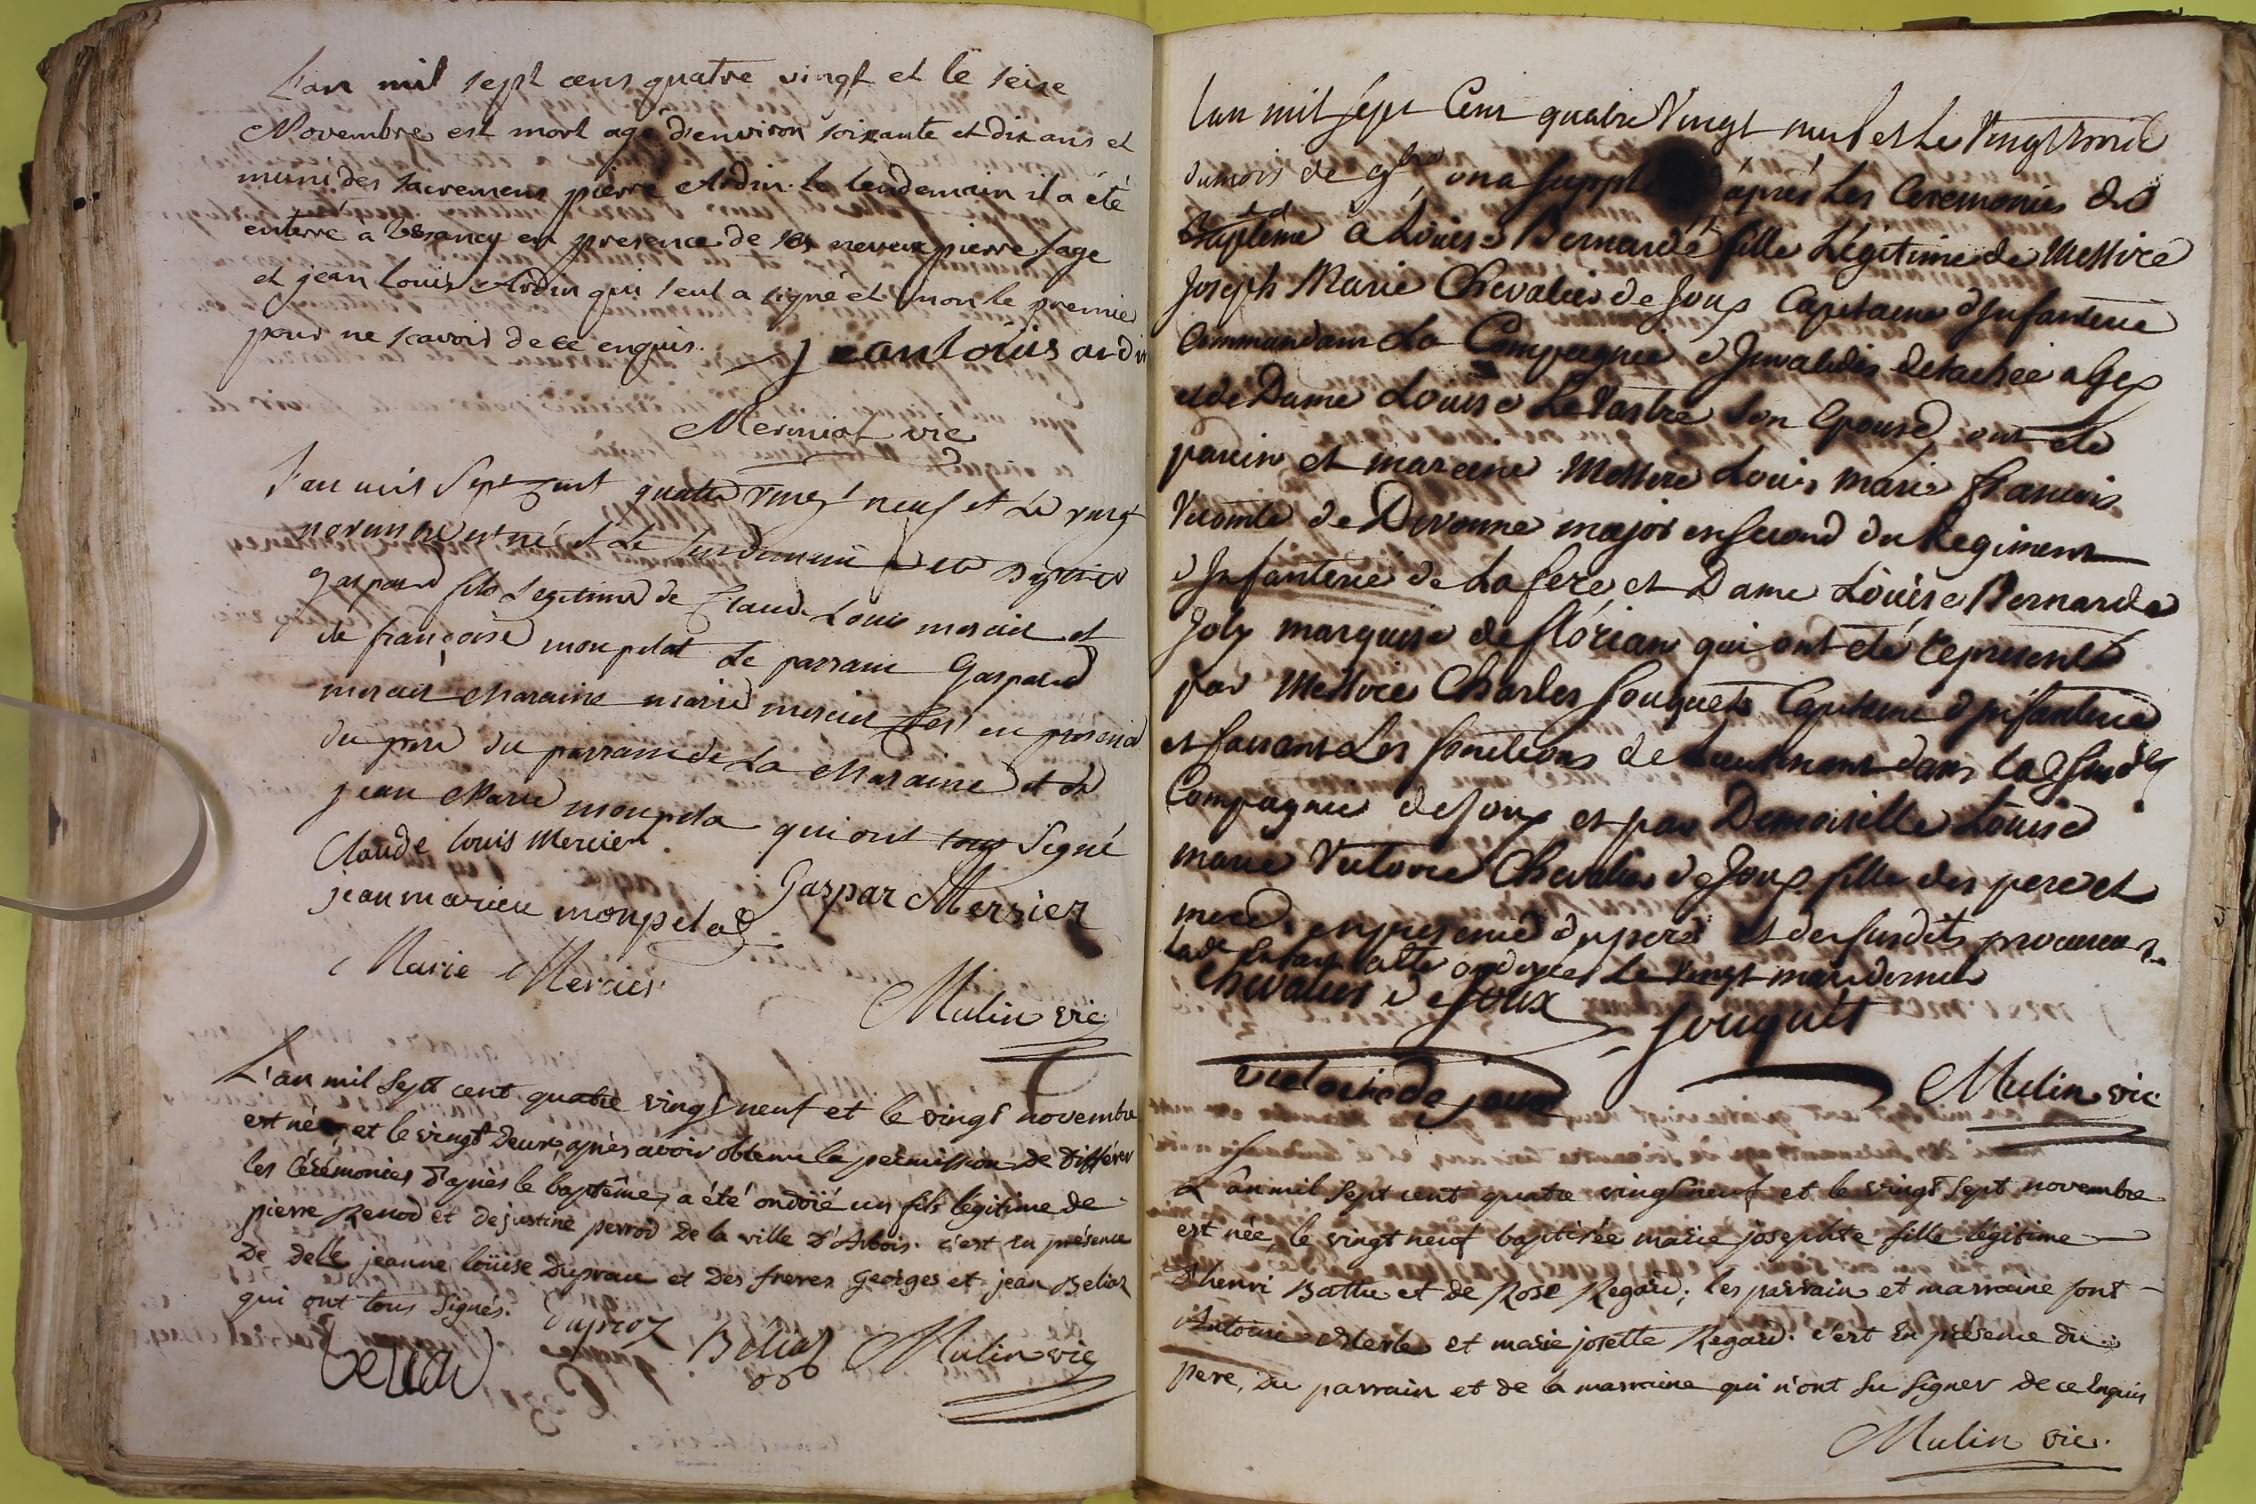 L'an mil sept cens quatre vingt et le seise
Novembre est mort agé d'environ soixante et dix ans et
muni des sacremens pierre Ardin. le lendemain il a été
enterré a en presence de ses neveux pierre sage
et jean Louis Ardin qui seul a signé et non le premier
pour ne scavoir de ce enquis. jean louis ardin
Mermiat vic
L'an mil sept cent quatre vingt neuf et le vingt
novembre est né et le lendemain a eté baptisé
gaspard fils legitime de Claude Louis mercier et
de françoise monpelat le parrain Gaspard
mercier Maraine marie mercier c'est en présence
du pere du parrain de La Maraine et de
jean Marie monpela qui ont tous Signé
Claude louis Mercier
jean marieu monpelas Gaspar Merzier
Marie Mercier
Mulin vic
L'an mil sept cent quatre vingt neuf et le vingt novembre
est né, et le vingt deux, après avoir obtenu la permission de différer
les cérémonies d'après le baptême, a été ondoïé un fils légitime de
pierre Renod et de justine perrod de la ville d'Arbois. c'est en présence
de delle jeanne loüise Duproux et des freres georges et jean Beliaz
qui ont tous signés. Duproz
Beliaz Mulin vic
L'an mil sept Cent quatre Vingt neuf et le Vingt trois
du mois de 9bre on a supplé d'après Les Ceremonies du
Baptême à Loüise Bernarde fille Légitime de Messire
Joseph Marie Chevalier de Joux Capitaine d'Infanterie
Commandant La Compagnie d'Invalides detachée a Gex
et de Dame Louise Le Vastre son Epouse, ont été
parein et mareine Messire Louis marie francois
Vicomte de Divonne major en second du Regiment
d'Infanterie de La fere et Dame Loüise Bernarde
Joly marquise de flórian qui ont été representés
par Messire Charles fouquet Capitaine d'infanterie
et faisant Les fonctions de Lieutenant dans la susdte
Compagnie de Joux et par Demoiselle Louise
marie Victoire Chevalier de Joux fille des pere et
mere, en presence du pere et des susdits procureurs
lade Enfant alte ondoyée Le Vingt mai dernier
chevalier de Joux fouquet
victoire de joux Mulin vic
L'an mil sept cent quatre vingt neuf et le vingt sept novembre
est née, le vingt neuf baptisée marie josephte fille légitime
d'henri Battu et de Rose Regard; les parrain et marraine sont
Antoine Merle et marie josette Regard. c'est en présence du
pere, du parrain et de la marraine qui n'ont su signer de ce enquis
Mulin vic.